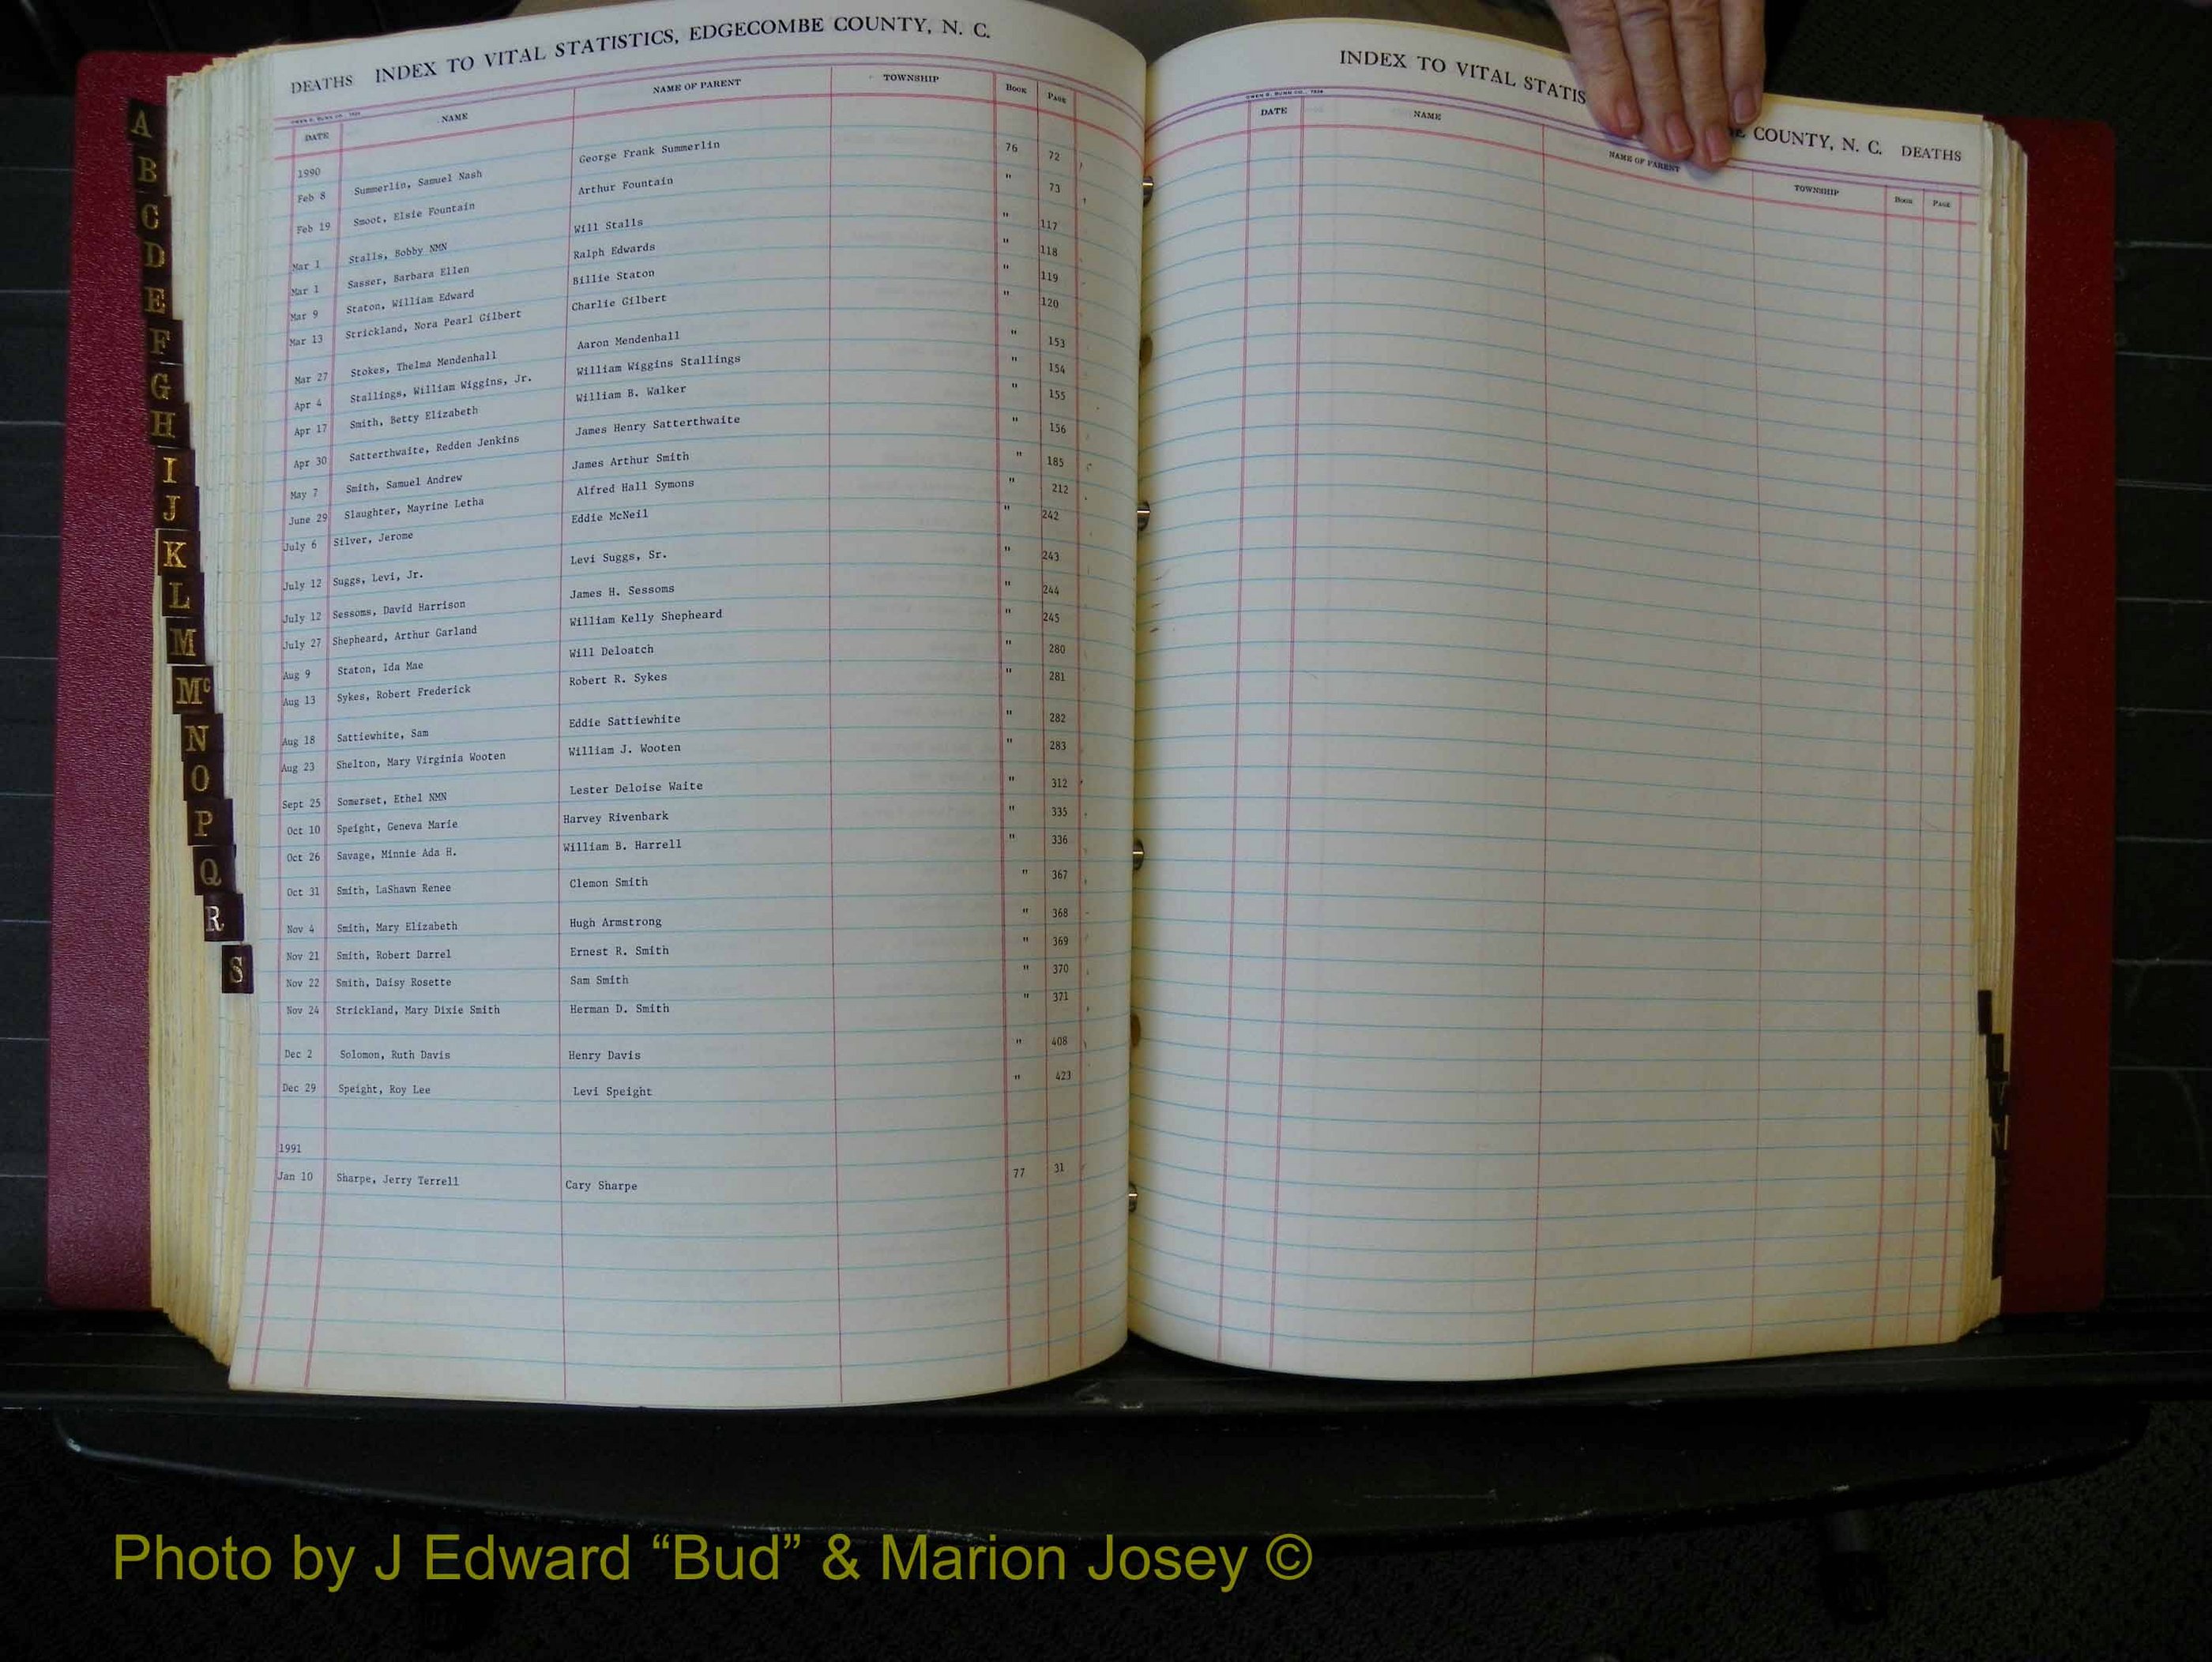 DEATHS INDEX TO VITAL STATISTICS, EDGECOMBE COUNTY, N. C.
DATE NAME NAME OF PARENT TOWNSHIP BOOK PAGE
1990
Feb 8 Summerlin, Samuel Nash George Frank Summerlin 76 72
Feb 19 Smoot, Elsie Fountain Arthur Fountain " 73
Mar 1 Stalls, Bobby NMN Will Stalls " 117
Mar 1 Sasser, Barbara Ellen Ralph Edwards " 118
Mar 9 Staton, William Edward Billie Staton " 119
Mar 13 Strickland, Nora Pearl Gilbert Charlie Gilbert " 120
Mar 27 Stokes, Thelma Mendenhall Aaron Mendenhall " 153
Apr 4 Stallings, William Wiggins, Jr. William Wiggins Stallings " 154
Apr 17 Smith, Betty Elizabeth William B. Walker " 155
Apr 30 Satterthwaite, Redden Jenkins James Henry Satterthwaite " 156
May 7 Smith, Samuel Andrew James Arthur Smith " 185
June 29 Slaughter, Mayrine Letha Alfred Hall Symons " 212
July 6 Silver, Jerome Eddie McNeil " 242
July 12 Suggs, Levi, Jr. Levi Suggs, Sr. " 243
July 12 Sessoms, David Harrison James H. Sessoms " 244
July 27 Shepheard, Arthur Garland William Kelly Shepheard " 245
Aug 9 Staton, Ida Mae Will Deloatch " 280
Aug 13 Sykes, Robert Frederick Robert R. Sykes " 281
Aug 18 Sattiewhite, Sam Eddie Sattiewhite " 282
Aug 23 Shelton, Mary Virginia Wooten William J. Wooten " 283
Sept 25 Somerset, Ethel NMN Lester Deloise Waite " 312
Oct 10 Speight, Geneva Marie Harvey Rivenbark " 335
Oct 26 Savage, Minnie Ada H. William B. Harrell " 336
Oct 31 Smith, LaShawn Renee Clemon Smith " 367
Nov 4 Smith, Mary Elizabeth Hugh Armstrong " 368
Nov 21 Smith, Robert Darrel Ernest R. Smith " 369
Nov 22 Smith, Daisy Rosette Sam Smith " 370
Nov 24 Strickland, Mary Dixie Smith Herman D. Smith " 371
Dec 2 Solomon, Ruth Davis Henry Davis " 408
Dec 29 Speight, Roy Lee Levi Speight " 423
1991
Jan 10 Sharpe, Jerry Terrell Cary Sharpe 77 31
A
B
C
D
E
F
G
H
I
J
K
L
M
Mc
N
O
P
Q
R
S
INDEX TO VITAL STATIS
COUNTY, N. C. DEATHS
DATE NAME NAME OF PARENT TOWNSHIP BOOK PAGE
Photo by J Edward “Bud” & Marion Josey ©